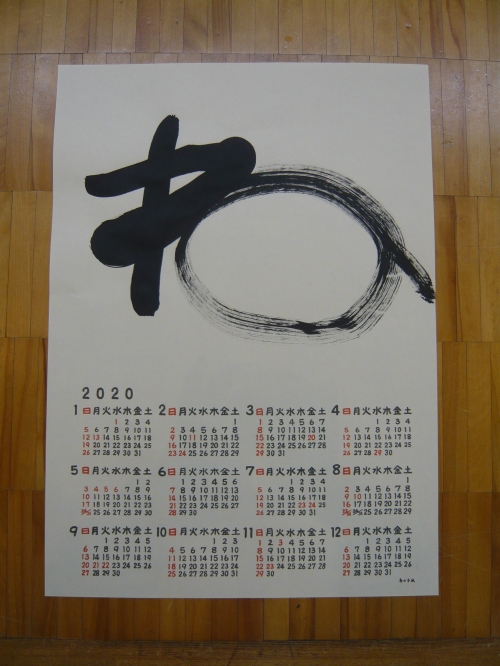 和
2020
1 日月火水木金土
1 2 3 4
5 6 7 8 9 10 11
12 13 14 15 16 17 18
19 20 21 22 23 24 25
26 27 28 29 30 31
2 日月火水木金土
1
2 3 4 5 6 7 8
9 10 11 12 13 14 15
16 17 18 19 20 21 22
23 24 25 26 27 28 29
3 日月火水木金土
1 2 3 4 5 6 7
8 9 10 11 12 13 14
15 16 17 18 19 20 21
22 23 24 25 26 27 28
29 30 31
4 日月火水木金土
1 2 3 4
5 6 7 8 9 10 11
12 13 14 15 16 17 18
19 20 21 22 23 24 25
26 27 28 29 30
5 日月火水木金土
1 2
3 4 5 6 7 8 9
10 11 12 13 14 15 16
17 18 19 20 21 22 23
24/31 25 26 27 28 29 30
6 日月火水木金土
1 2 3 4 5 6
7 8 9 10 11 12 13
14 15 16 17 18 19 20
21 22 23 24 25 26 27
28 29 30
7 日月火水木金土
1 2 3 4
5 6 7 8 9 10 11
12 13 14 15 16 17 18
19 20 21 22 23 24 25
26 27 28 29 30 31
8 日月火水木金土
1
2 3 4 5 6 7 8
9 10 11 12 13 14 15
16 17 18 19 20 21 22
23/30 24/31 25 26 27 28 29
9 日月火水木金土
1 2 3 4 5
6 7 8 9 10 11 12
13 14 15 16 17 18 19
20 21 22 23 24 25 26
27 28 29 30
10 日月火水木金土
1 2 3
4 5 6 7 8 9 10
11 12 13 14 15 16 17
18 19 20 21 22 23 24
25 26 27 28 29 30 31
11 日月火水木金土
1 2 3 4 5 6 7
8 9 10 11 12 13 14
15 16 17 18 19 20 21
22 23 24 25 26 27 28
29 30
12 日月火水木金土
1 2 3 4 5
6 7 8 9 10 11 12
13 14 15 16 17 18 19
20 21 22 23 24 25 26
27 28 29 30 31